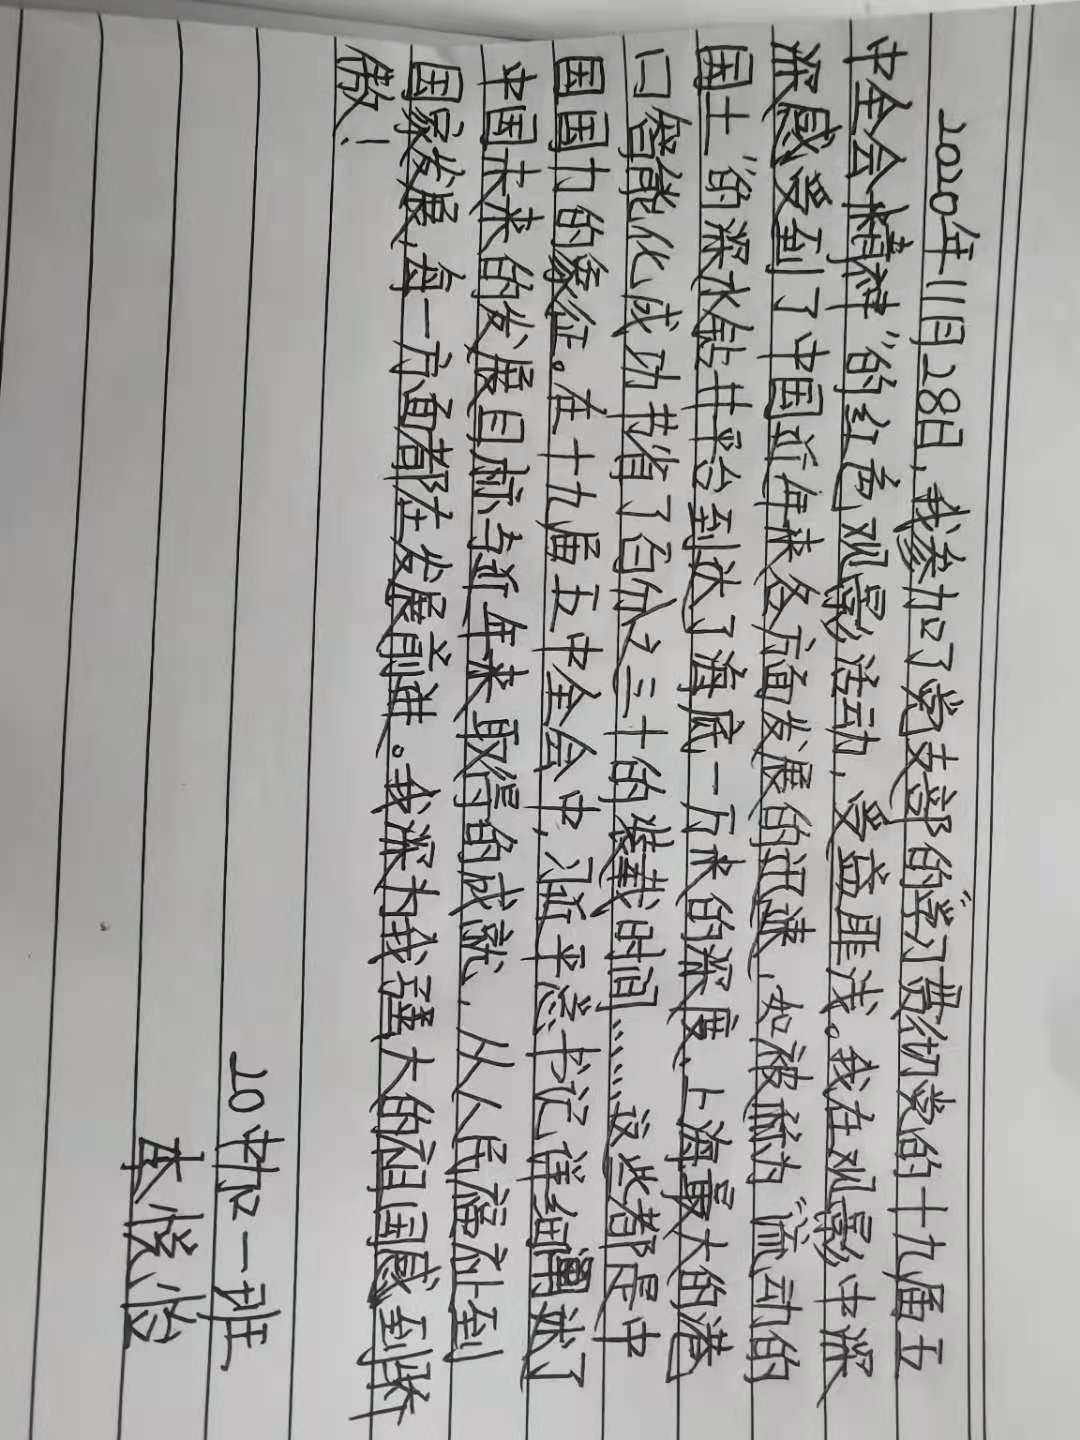 2020年11月28日,我参加了党支部的“学习贯彻党的十九届五
中全会精神”的红色观影活动,受益匪浅。我在观影中深
深感受到了中国近年来各方面发展的迅速,如被称为“流动的
国土”的深水钻井平台到达了海底一万米的深度、上海最大的港
口智能化成功节省了百分之三十的装载时间……这些都是中
国国力的象征。在十九届五中全会中,习近平总书记详细阐述了
中国未来的发展目标与近年来取得的成就,从人民福祉到
国家发展,每一方面都在发展前进。我深为我强大的祖国感到骄
傲!
20中加一班
本悦怡